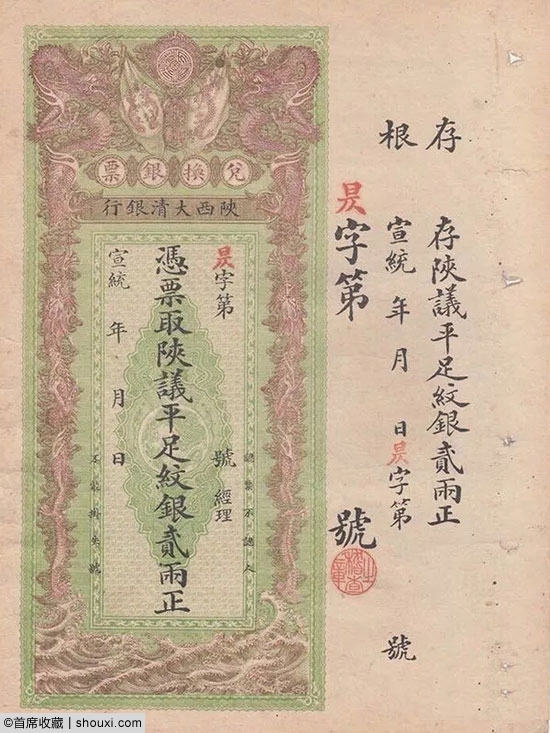 存根
存陝議平足紋銀貳兩正
宣統 年 月 日昃字第 號
昃字第 號
兌換銀票
陝西大清銀行
認票不認人
昃字第 號 經理
憑票取陝議平足紋銀貳兩正
宣統 年 月 日
©首席收藏 | shouxi.com